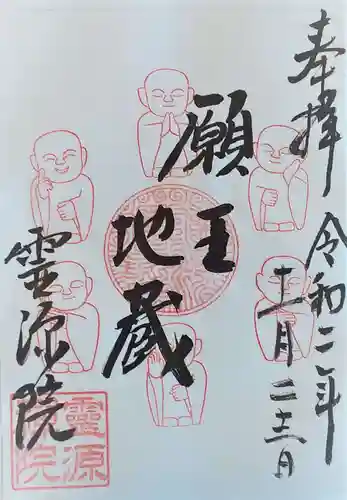 奉拝
令和二年
十一月二十二日
願王
地蔵
霊源院
靈源院